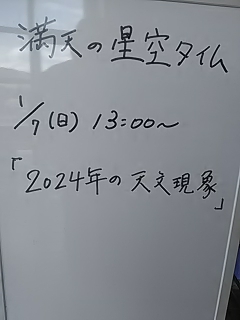 満天の星空タイム
1/7(日) 13:00〜
「2024年の天文現象」